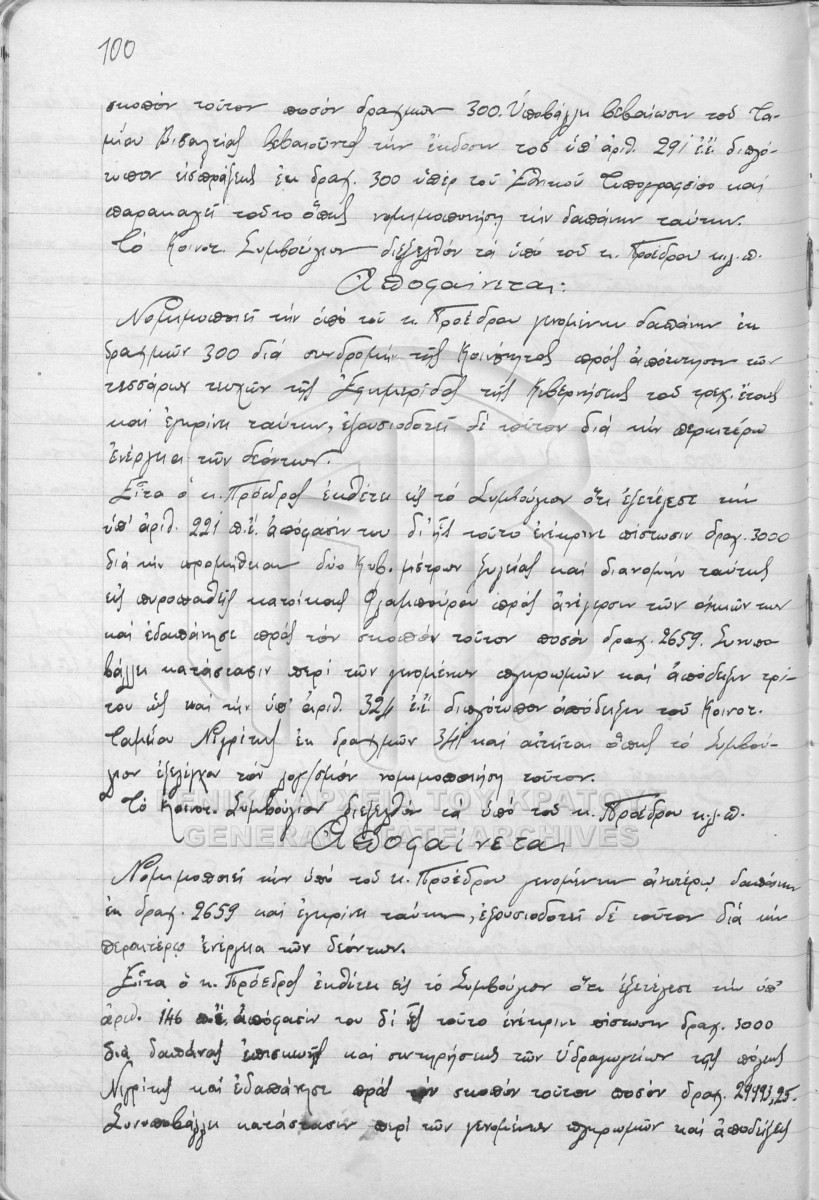 100
σκοπόν τοῦτον ποσόν δραχμῶν 300. Ὑποβάλλει βεβαίωσιν τοῦ Τα-
μίου Βισαλτίας βεβαιοῦντος τήν ἔκδοσιν τοῦ ὑπ' ἀριθ. 291 ἐ.ἔ. διπλό-
τυπον εἰσπράξεως ἐκ δραχ. 300 ὑπέρ τοῦ Ἐθνικοῦ Τυπογραφείου καί
παρακαλεῖ τοῦτο ὅπως νομιμοποιήση τήν δαπάνην ταύτην.
Τό Κοινοτ. Συμβούλιον διεξελθόν τά ὑπό τοῦ κ. Προέδρου κ.λ.π.
Ἀποφαίνεται:
Νομιμοποιεῖ τήν ὑπό τοῦ κ. Προέδρου γενομένην δαπάνην ἐκ
δραχμῶν 300 διά συνδρομήν τῆς Κοινότητος πρός ἀπόκτησιν τῶν
τεσσάρων τευχῶν τῆς Ἐφημερίδος τῆς Κυβερνήσεως τοῦ τρεχ. ἔτους
καί ἐγκρίνει ταύτην, ἐξουσιοδοτεῖ δέ τοῦτον διά τήν περαιτέρω
ἐνέργειαν τῶν δεόντων.
Εἶτα ὁ κ. Πρόεδρος ἐκθέτει εἰς τό Συμβούλιον ὅτι ἐξετέλεσε τήν
ὑπ' ἀριθ. 221 π.ἔ. ἀπόφασίν του δι' ἧς τοῦτο ἐνέκρινε πίστωσιν δραχ. 3000
διά τήν προμήθειαν δύο Κυβ. μέτρων ξυλείας καί διανομήν ταύτης
εἰς πυροπαθεῖς κατοίκους Φλαμπούρου πρός ἀνέγερσιν τῶν οἰκιῶν των
καί ἐδαπάνησε πρός τόν σκοπόν τοῦτον ποσόν δραχ. 2659. Συνυπο-
βάλλει κατάστασιν περί τῶν γενομένων πληρωμῶν καί ἀπόδειξιν τρί-
του ὡς καί τήν ὑπ' ἀριθ. 324 ἐ.ἔ. διπλότυπον ἀπόδειξιν τοῦ Κοινοτ.
Ταμείου Νιγρίτης ἐκ δραχμῶν 341 καί αἰτεῖται ὅπως τό Συμβού-
λιον ἐξελέγχον τόν λογ/σμόν νομιμοποιήση τοῦτον.
Τό Κοινοτ. Συμβούλιον διεξελθόν τά ὑπό τοῦ κ. Προέδρου κ.λ.π.
ΓΕΝΙΚΑ ΑΡΧΕΙΑ ΤΟΥ ΚΡΑΤΟΥΣ
GENERAL STATE ARCHIVES
Ἀποφαίνεται
Νομιμοποιεῖ τήν ὑπό τοῦ κ. Προέδρου γενομένην ἀνωτέρω δαπάνην
ἐκ δραχ. 2659 καί ἐγκρίνει ταύτην, ἐξουσιοδοτεῖ δέ τοῦτον διά τήν
περαιτέρω ἐνέργειαν τῶν δεόντων.
Εἶτα ὁ κ. Πρόεδρος ἐκθέτει εἰς τό Συμβούλιον ὅτι ἐξετέλεσε τήν ὑπ'
ἀριθ. 146 π.ἔ. ἀπόφασίν του δι' ἧς τοῦτο ἐνέκρινε πίστωσιν δραχ. 3000
διά δαπάνας ἐπισκευῆς καί συντηρήσεως τῶν Ὑδραγωγείων τῆς πόλεως
Νιγρίτης καί ἐδαπάνησε πρός τόν σκοπόν τοῦτον ποσόν δραχ.
Συνυποβάλλει κατάστασιν περί τῶν γενομένων πληρωμῶν καί ἀποδείξεις